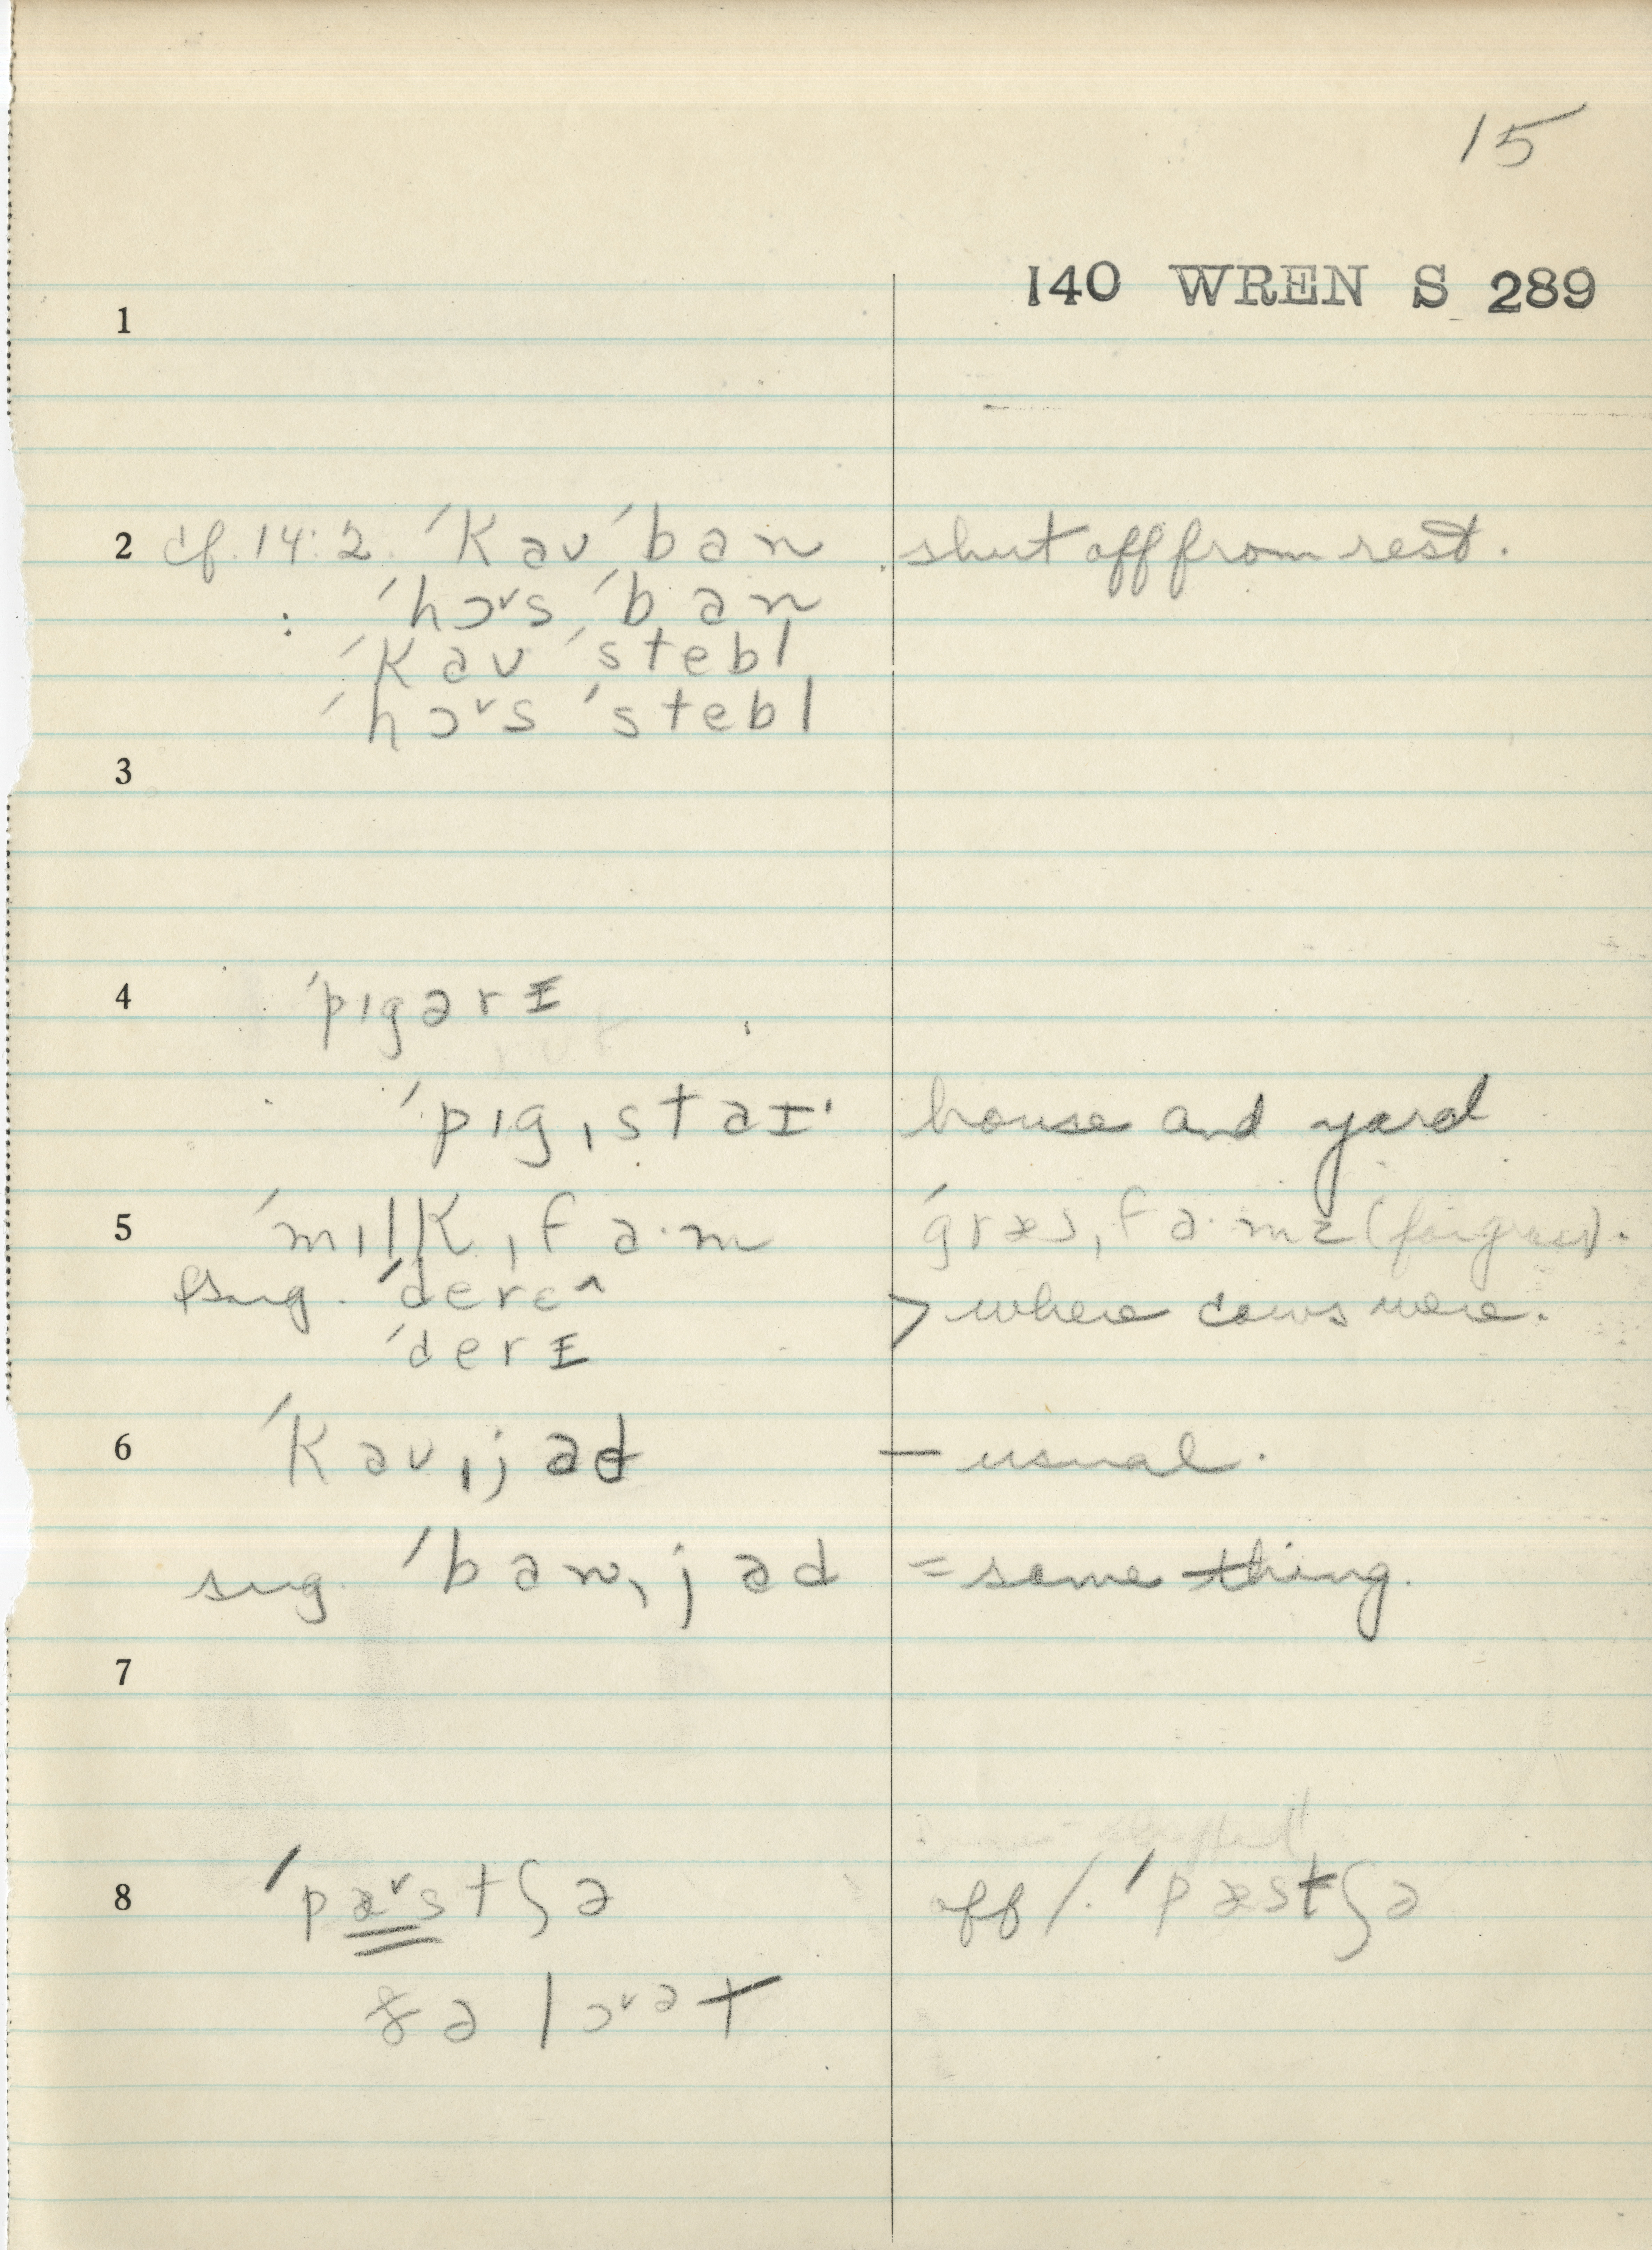 15
140 WREN S 289
1
2 cf. 14:2. ˈkaʊ ˈban . shut off from rest.
: ˈhɔ˅s ˈban
ˈkaʊ ˈstebl
ˈhɔ˅s ˈstebl
3
4 ˈpɪgərɪ
ˈpɪgˌstaɪ' house and yard
5 ˈmɪlkˌfa·m ˈgræsˌfa·mz (for grass).
sug. ˈderɛ^ > where cows were.
ˈderɪ
6 ˈkaʊˌjad — usual.
sug. ˈbanˌjad = same thing.
7
8 ˈpæ˅stʃə off /. ˈpæstʃə
ðə lɔ˅ət